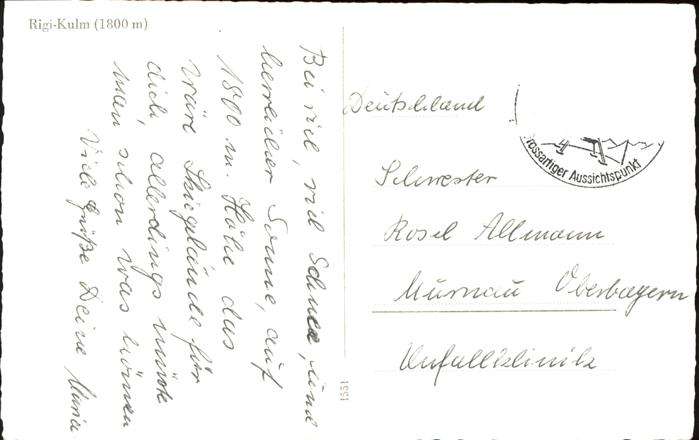 Rigi-Kulm (1800 m)
Bei viel, viel Schnee, und
herrlicher Sonne, auf
1800 m. Höhe das
wäre Skigelände für
dich, allerdings müßte
man schon was können
Viele Grüße Deine Maria
Deutschland
Schwester
Rosel Allmann
Murnau Oberbayern
Unfallklinik
rossartiger Aussichtspunkt
1551